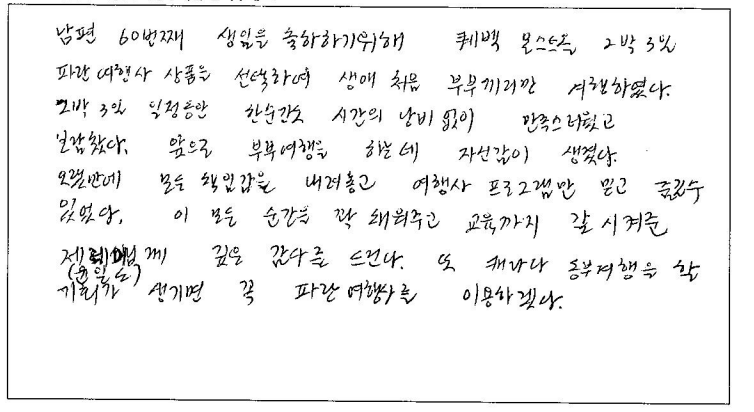 남편 60번째 생일을 축하하기위해 퀘벡 몬트리올 2박 3일
파란여행사 상품을 선택하여 생애 처음 부부끼리만 여행하였다.
2박 3일 일정동안 한순간도 시간의 낭비 없이 만족스러웠고
보람찼다. 앞으로 부부여행을 하는데 자신감이 생겼다.
오랜만에 모든 책임감을 내려놓고 여행사 프로그램만 믿고 즐길수
있었다. 이 모든 순간을 꽉 채워주고 교육까지 잘 시켜준
께 깊은 감사를 드린다. 또 캐나다 동부여행을 할
(윤일도)
기회가 생기면 꼭 파란여행사를 이용하겠다.